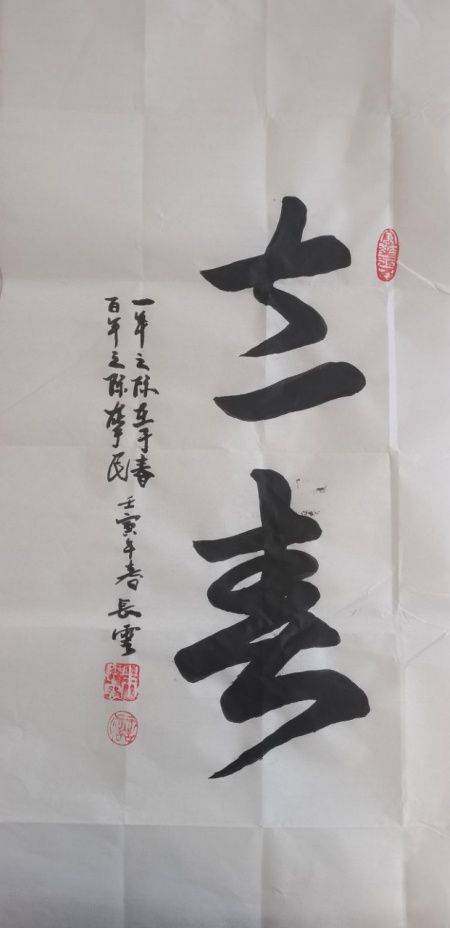 立春
一年之际在于春
百年之际民 壬寅年春 長雲